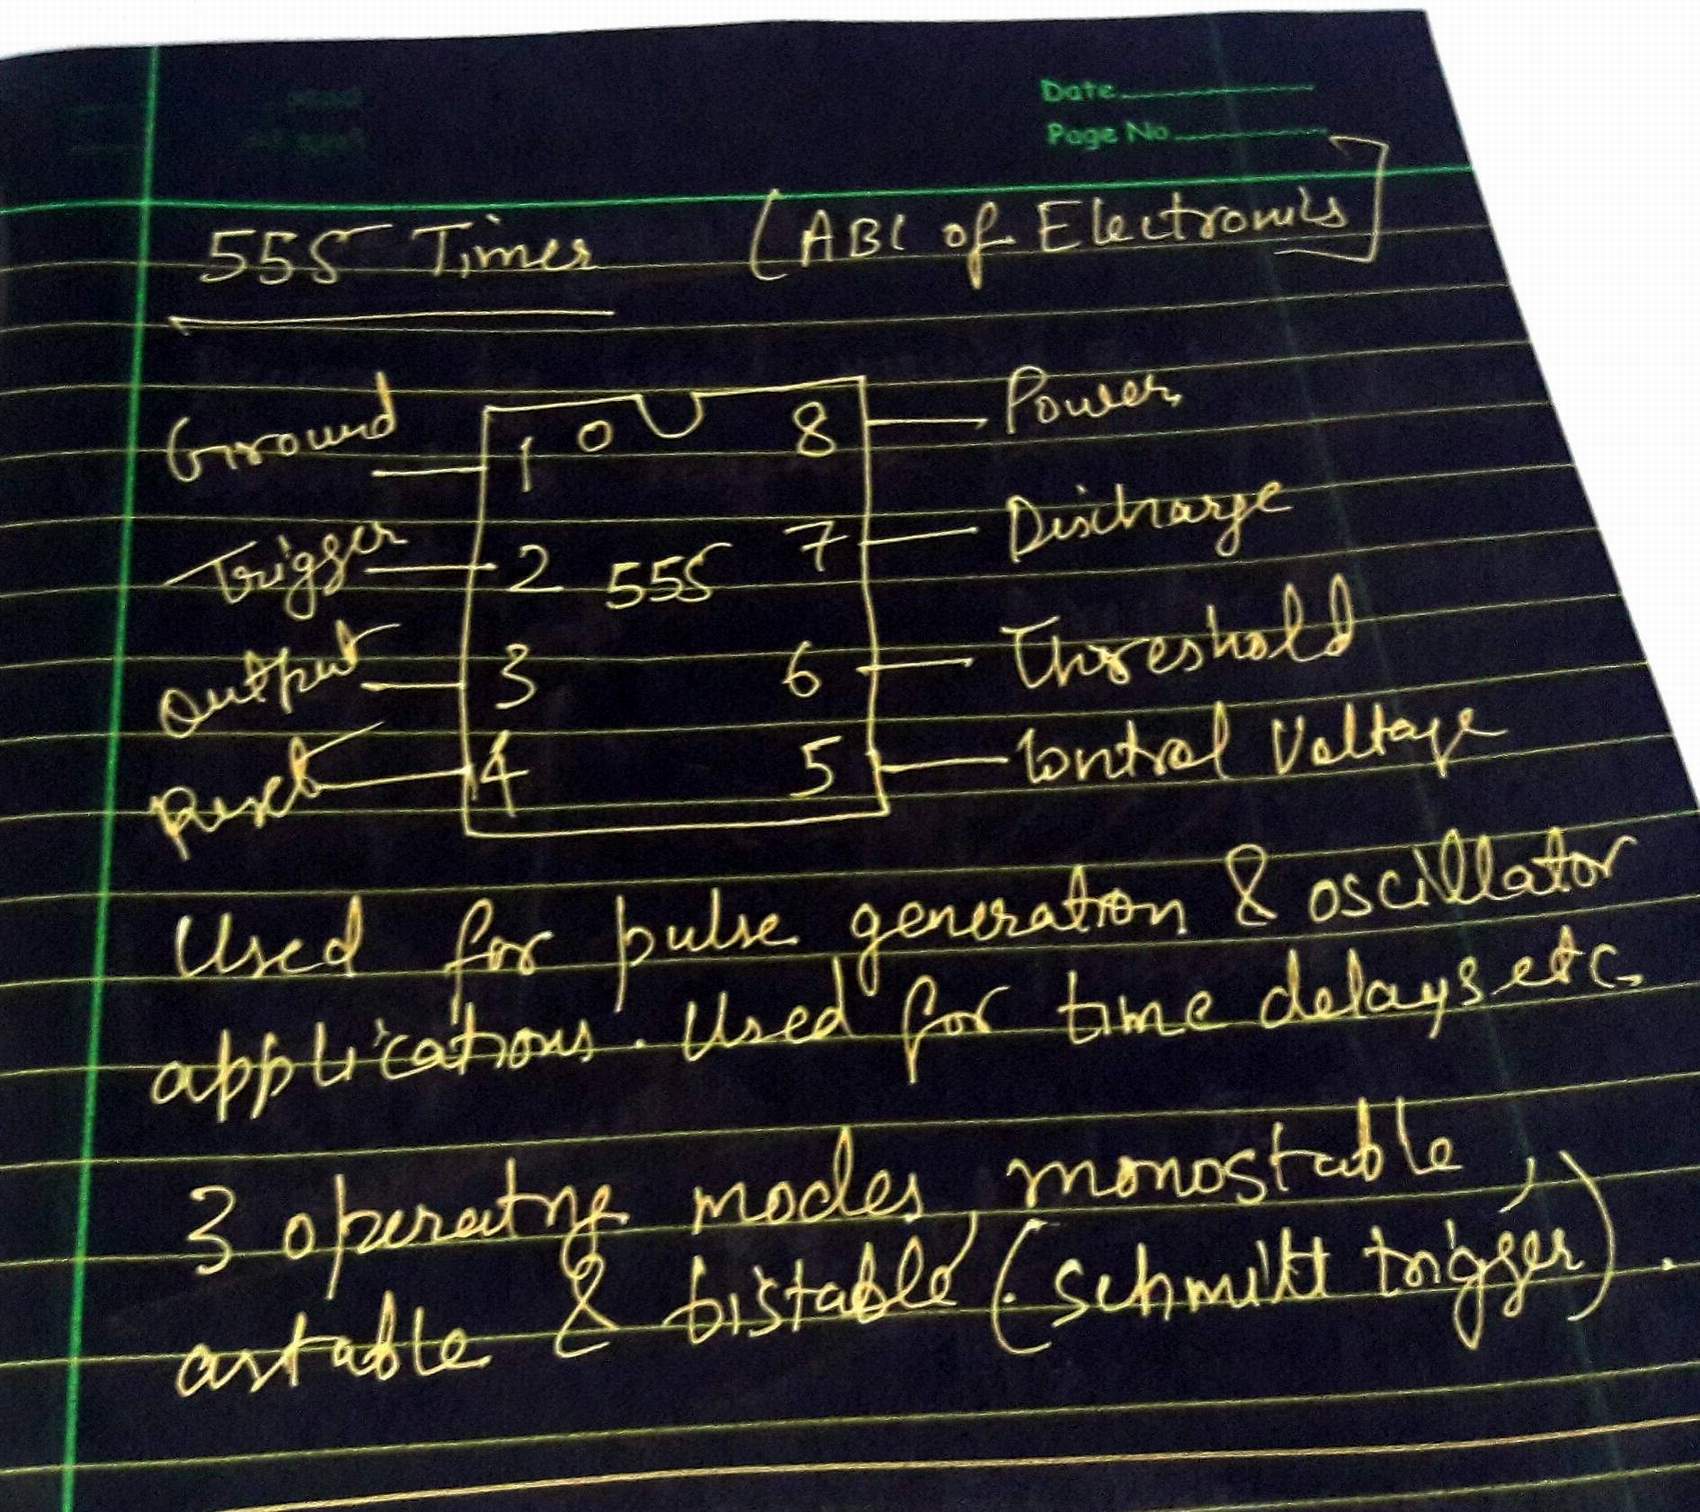 Date
Page No
555 Timer (ABC of Electronics]
Ground 1 8 Power
Trigger 2 555 7 Discharge
Output 3 6 Threshold
Reset 4 5 Control Voltage
Used for pulse generation & oscillator
applications. Used for time delays etc.
3 operating modes, monostable,
astable & bistable (schmitt trigger).